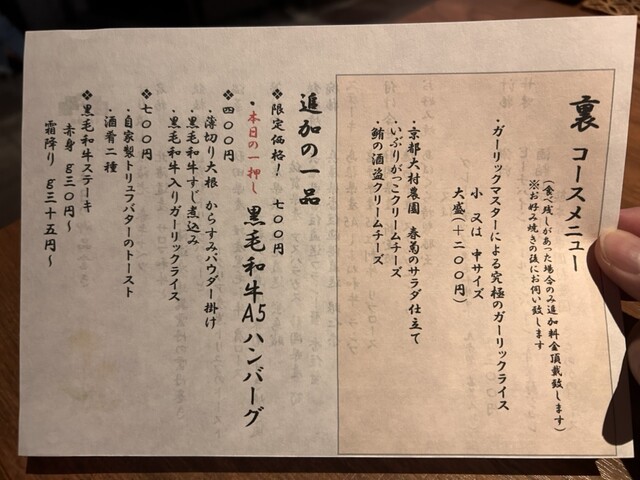 裏 コースメニュー
(食べ残しがあった場合のみ追加料金頂戴致します)
※お好み焼きの後にお伺い致します
・ガーリックマスターによる究極のガーリックライス
小 又は 中サイズ
大盛(+二〇〇円)
・京都大村農園 春菊のサラダ仕立て
・いぶりがっこクリームチーズ
・鮪の酒盗クリームチーズ
追加の一品
❖限定価格! 七〇〇円
・本日の一押し 黒毛和牛A5ハンバーグ
❖四〇〇円
・薄切り大根 からすみパウダー掛け
・黒毛和牛すじ煮込み
・黒毛和牛入りガーリックライス
❖七〇〇円
・自家製トリュフバターのトースト
・酒肴二種
❖黒毛和牛ステーキ
赤身 g三〇円〜
霜降り g三十五円〜